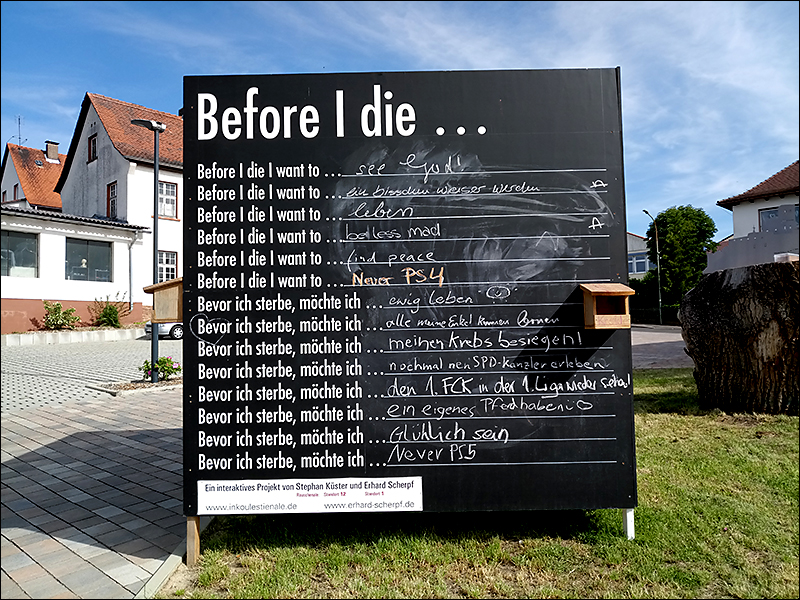 Before I die ...
Before I die I want to ... see God!
Before I die I want to ... ein bisschen weiser werden
Before I die I want to ... leben A
Before I die I want to ... be less mad
Before I die I want to ... find peace
Before I die I want to ... Never PS4
Bevor ich sterbe, möchte ich ... ewig leben
Bevor ich sterbe, möchte ich ... alle meine Enkel kennen lernen
Bevor ich sterbe, möchte ich ... meinen Krebs besiegen!
Bevor ich sterbe, möchte ich ... nochmal nen SPD-Kanzler erleben
Bevor ich sterbe, möchte ich ... den 1. FCK in der 1. Liga wieder sehen!
Bevor ich sterbe, möchte ich ... ein eigenes Pferd haben!
Bevor ich sterbe, möchte ich ... Glüklich sein
Bevor ich sterbe, möchte ich ... Never PS5
Ein interaktives Projekt von Stephan Küster und Erhard Scherpf
Standort 12 Standort 1
www.inkoulestienale.de www.erhard-scherpf.de